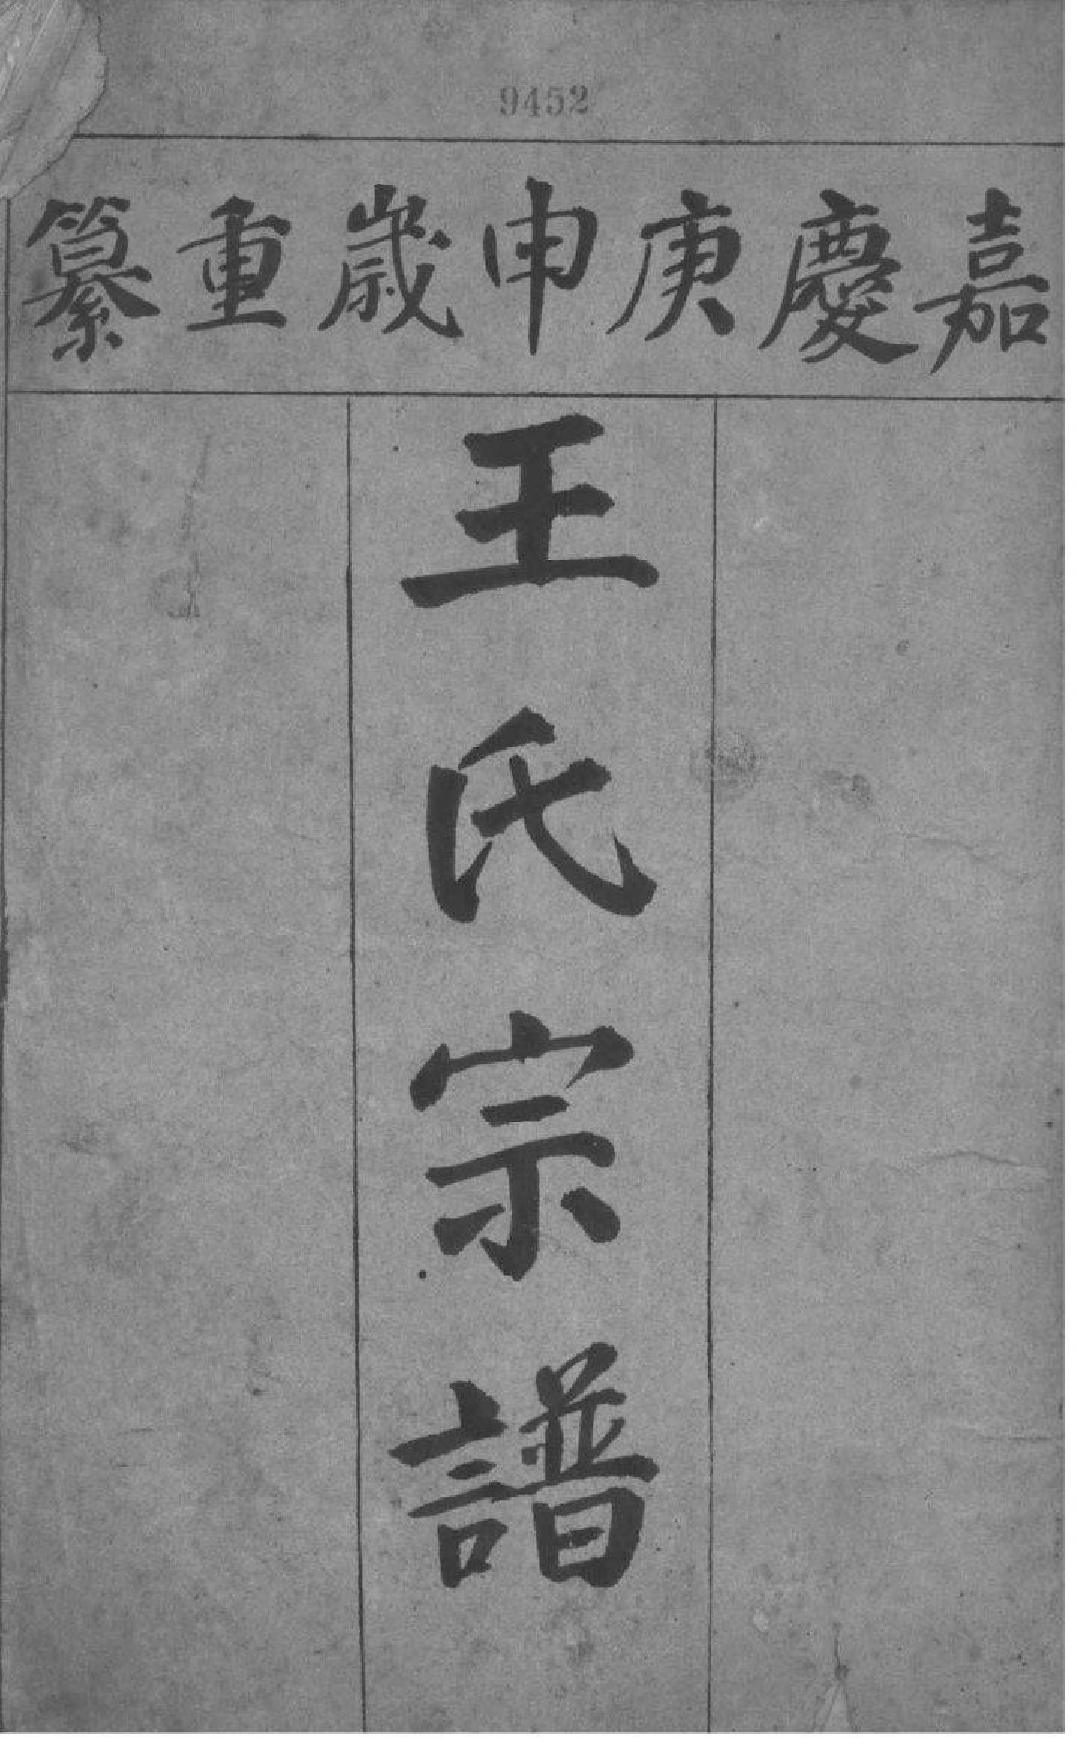 9452
嘉慶庚申歲重纂
王氏宗譜